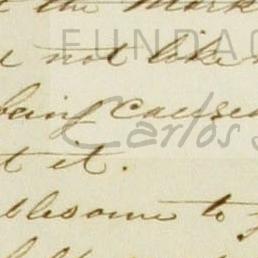 the Mark
not like
being caused
t it.
blesome to
FUNDAC
Carlos